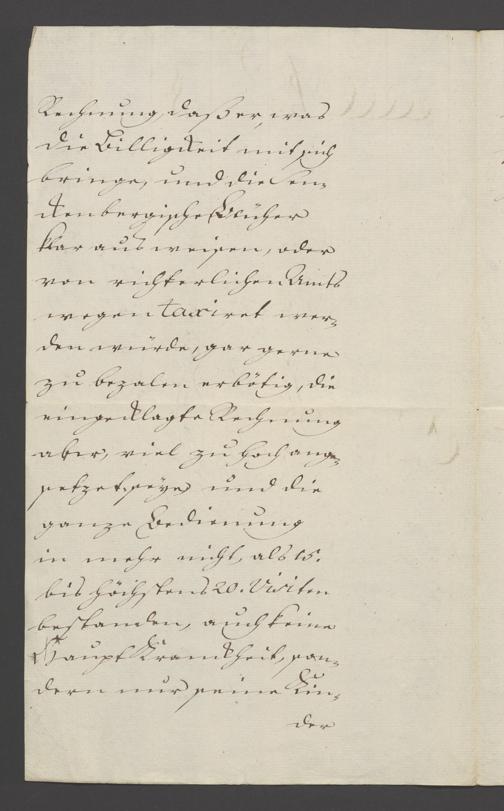 Rechnung, daß er, was
die Billigkeit mit sich
bringe, und die Sen-
ckenbergische Bücher
klar ausweisen, oder
von richterlichen Amts
wegen taxiret wer-
den würde, gar gerne
zu bezalen erbötig, die
eingeklagte Rechnung
aber, viel zu hoch ange-
setzet seye, und die
ganze Bedienung
in mehr nicht, als 15.
bis höchstens 20. Visiten
bestanden, auch keine
Haupt Kranckheit, son-
dern nur seine Kin-
der